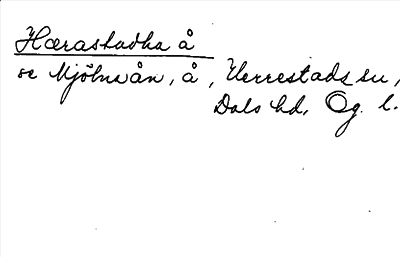 Hærastadha å
se Mjölnaån, å, Herrestads sn,
Dals hd, Ög. l.